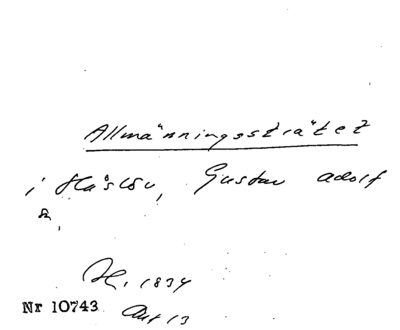 Allmänningssträtet
i Haslöv, Gustav Adolf
H. 1834
Nr 10743 Aut 13